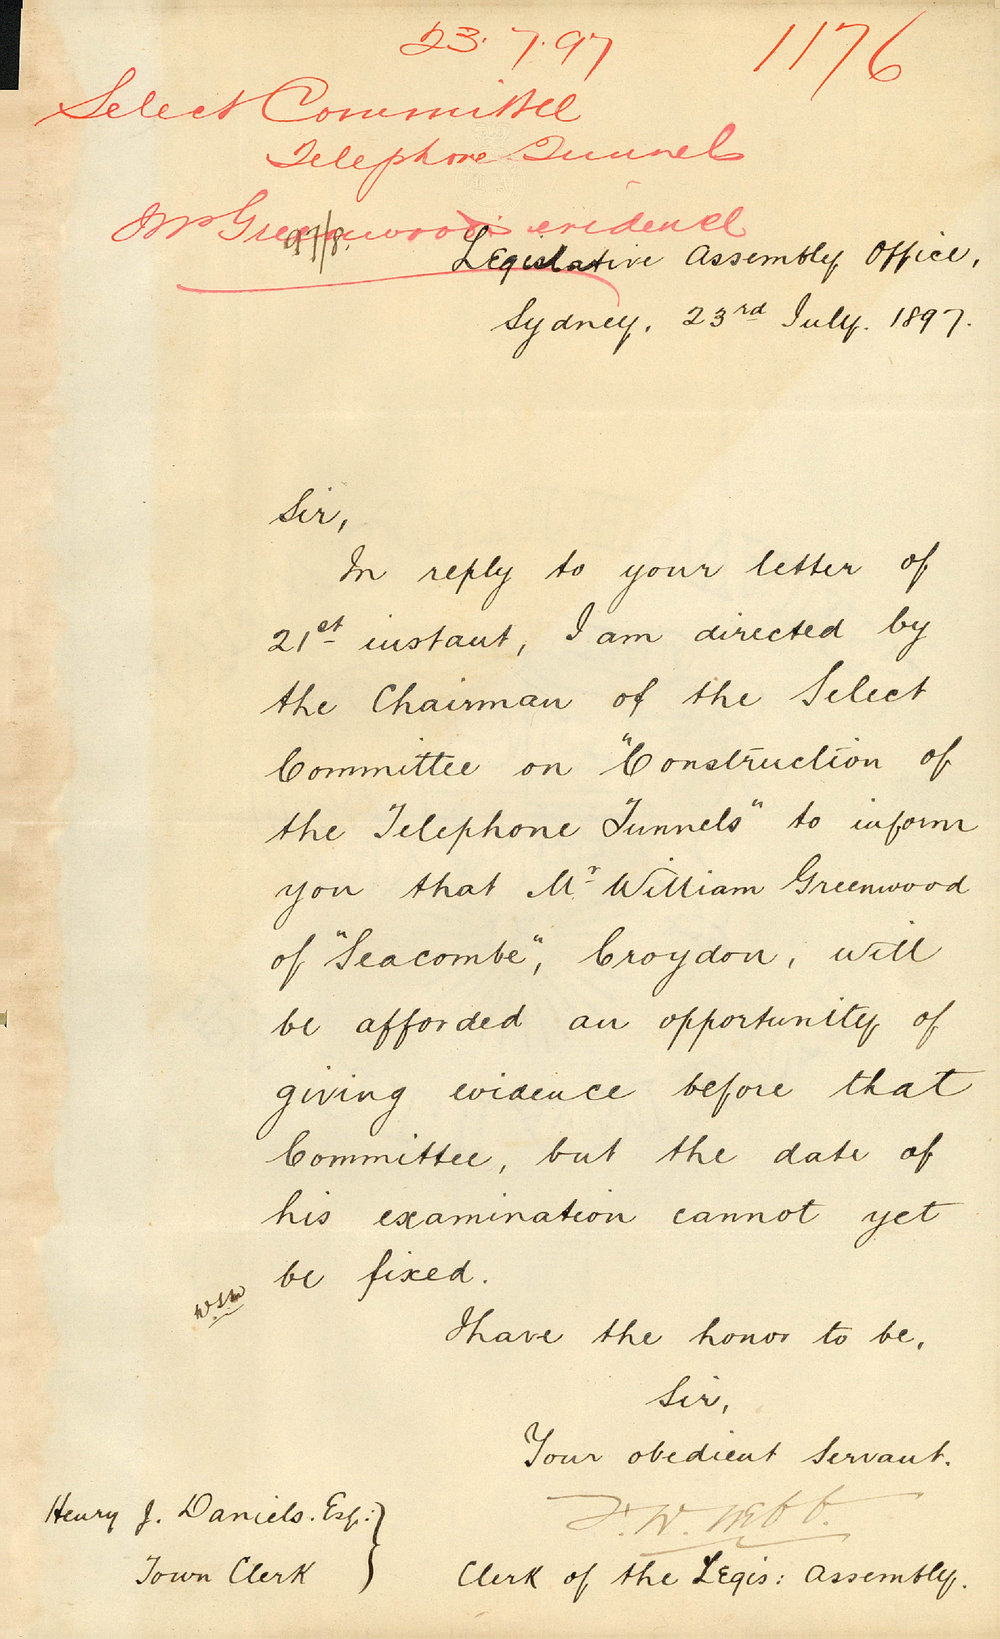 23.7.97 1176
Select Committee
Telephone Tunnels
Mr Greenwood's evidence
97/8.
Legislative Assembly Office,
Sydney, 23rd July. 1897.
Sir,
In reply to your letter of
21st instant, I am directed by
the Chairman of the Select
Committee on "Construction of
the Telephone Tunnels" to inform
you that Mr William Greenwood
of "Seacombe", Croydon, will
be afforded an opportunity of
giving evidence before that
Committee, but the date of
his examination cannot yet
be fixed.
I have the honor to be,
Sir,
Your obedient servant.
F. W. Webb.
Henry J. Daniels. Esq:
Town Clerk
Clerk of the Legis: Assembly.